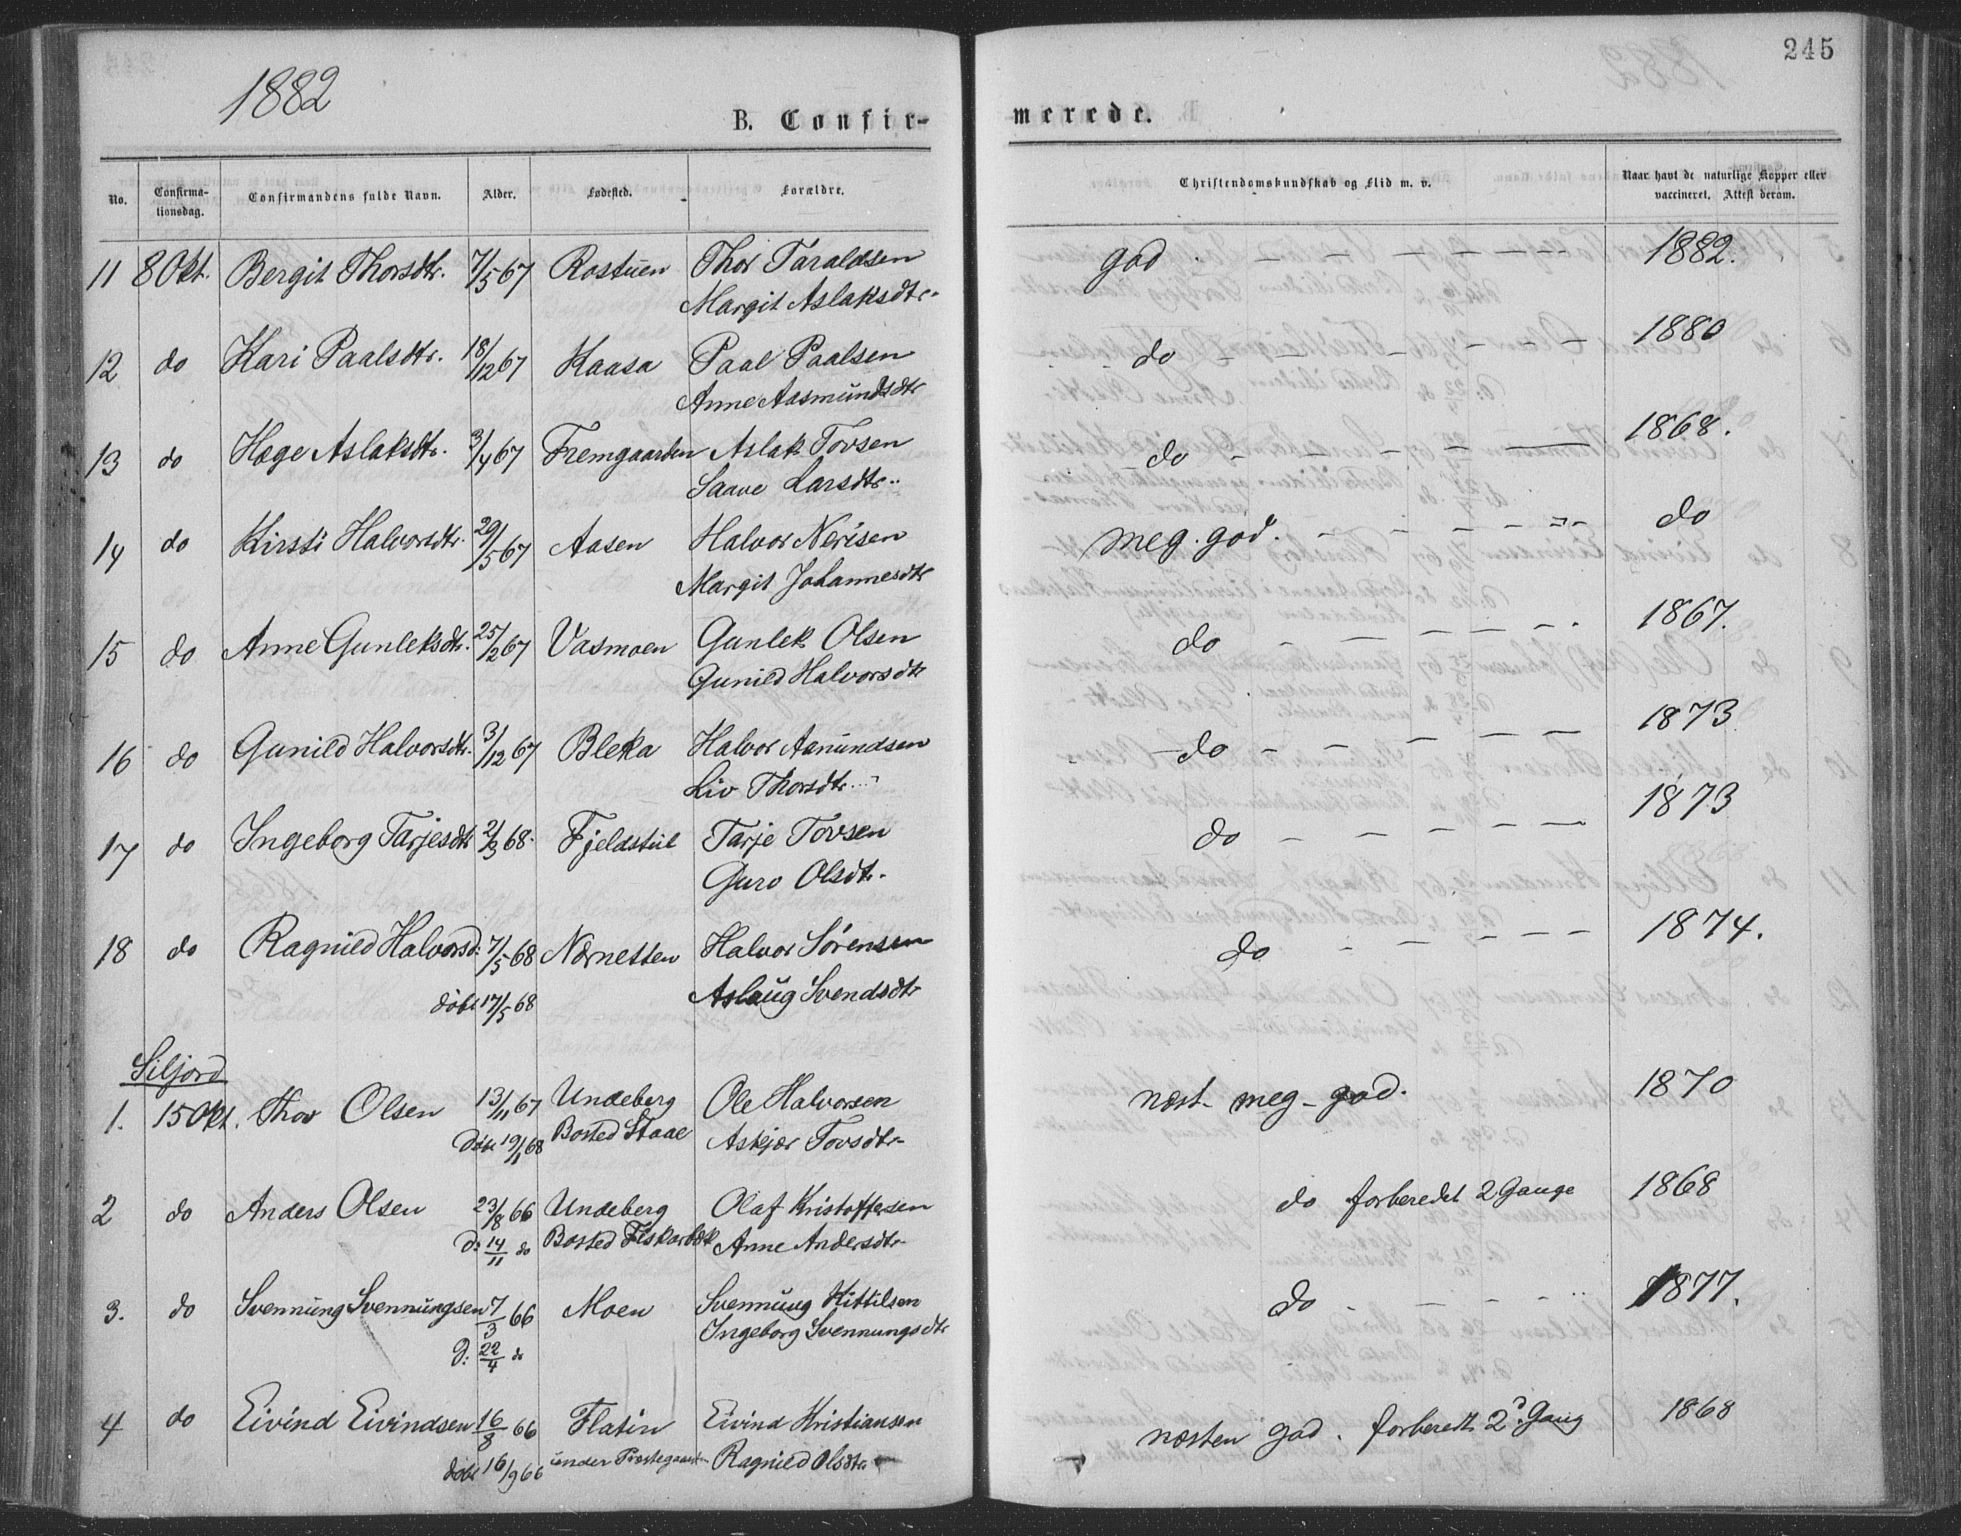 1882
245
B. Confir-
merede.
No.
Confirma-
tionsdag.
Confirmandens fulde Navn.
Alder.
Fødested.
Forældre.
Christendomskundskab og Flid m. v.
Naar havt de naturlige Kopper eller
vaccineret. Attest derom.
11 8 Okt. Bergit Thorsdtr. 7/5 67 Rostuen Thor Taraldsen god 1882.
Margit Aslaksdtr.
12 do Kari Paalsdtr. 18/12 67 Kaasa Paal Paalsen do 1880
Anne Aasmundsdtr
13 do Hæge Aslaksdtr. 3/4 67 Fremgaarden Aslak Tovsen do 1868.
Saave Larsdtr.
14 do Kirsti Halvorsdtr. 29/5 67 Aasen Halvor Nerisen meg. god. do
Margit Johannesdtr
15 do Anne Gunleksdtr. 25/2 67 Vasmoen Gunlek Olsen do 1867.
Gunild Halvorsdtr
16 do Gunild Halvorsdtr. 3/12 67 Bleka Halvor Amundsen do 1873
Liv Thorsdtr.
17 do Ingeborg Tarjesdtr 2/3 68. Fjeldstul Tarje Tovsen do 1873
Guro Olsdtr.
18 do Ragnild Halvorsd: 7/5 68 Nærnetten Halvor Sørensen do 1874.
døbt 17/5 68 Aslaug Svendsdtr
Siljord
1. 15 Okt. Thor Olsen 13/11 67 Undeberg Ole Halvorsen næst meg-god. 1870
Døbt 19/1 68 Bosted Staae Askjær Tovsdtr
2 do Anders Olsen 23/8 66 Undeberg Olaf Kristoffersen do forberedet 2 Gange 1868
D: 14/11 do Bosted Fiskarbæk Anne Andersdtr
3. do Svennung Svennungsen 7/3 66 Moen Svennung Kittilsen do 1877.
D: 22/4 do Ingeborg Svennungsdtr
4 do Eivind Eivindsen 16/8 66 Flatin Eivind Kristiansen næsten god. forberedt 2d. Gang 1868
døbt 16/9 66 under Præstegaard Ragnild Olsdtr.